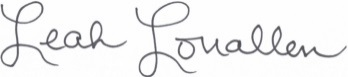 Leah Louallen